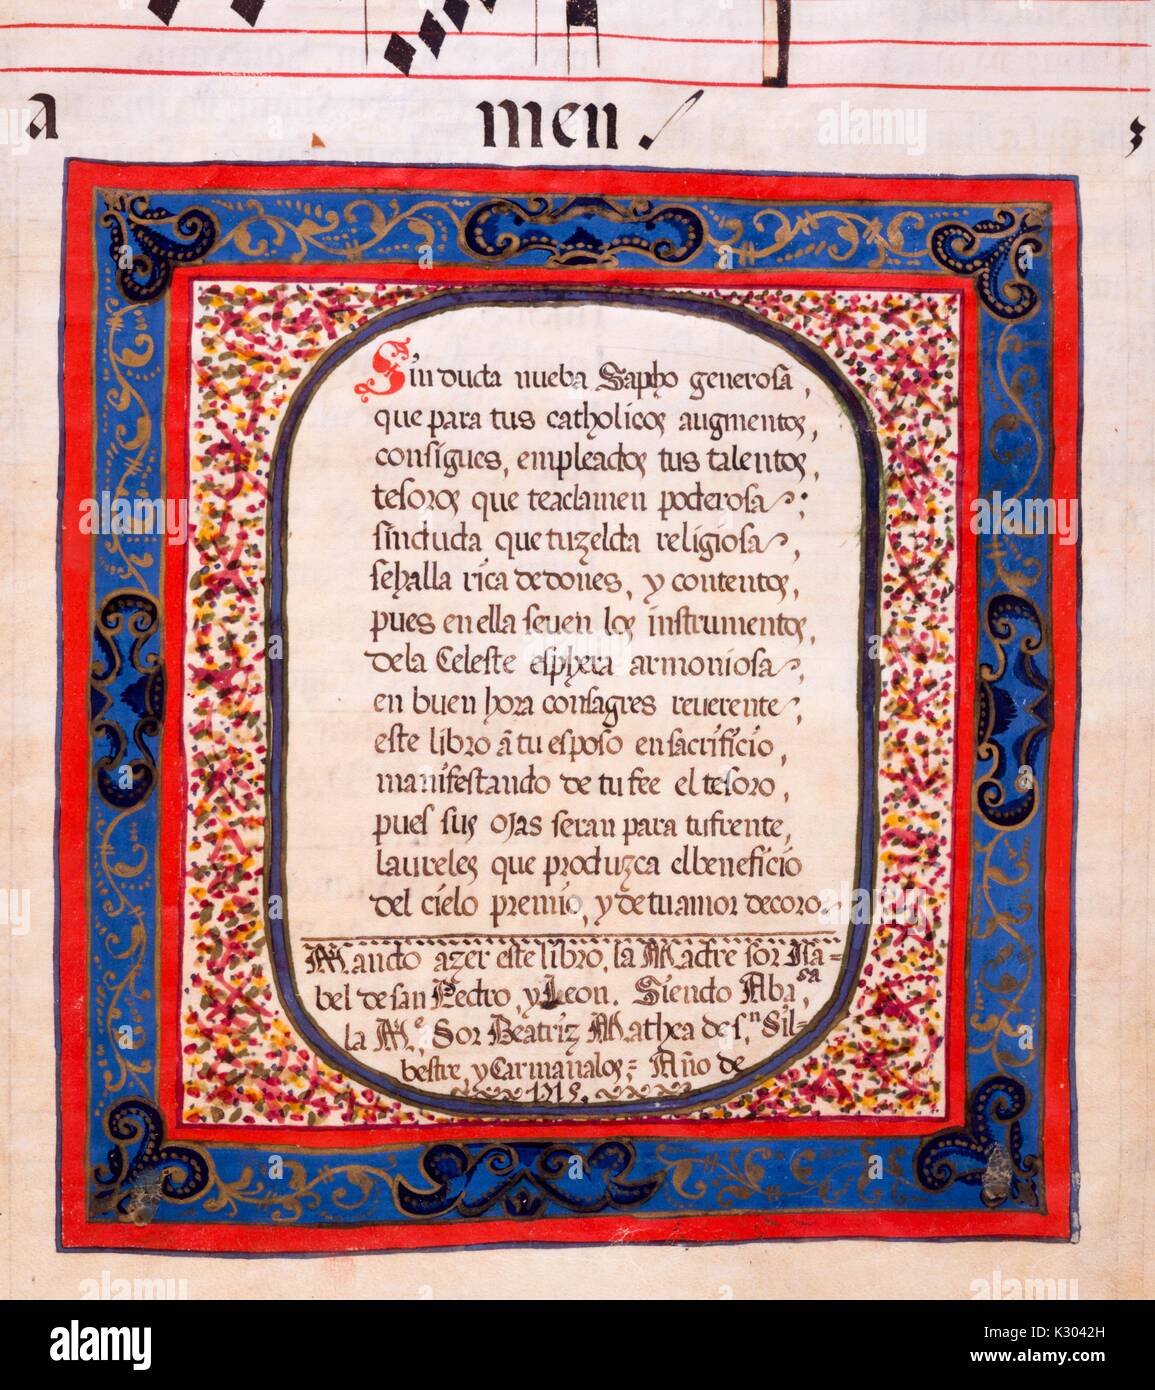 a men ;
Sin ducta nueba Sapho generosa,
que para tus catholicos augmentos,
consigues, empleados tus talentos,
tesoros que teaclamen poderosa;
sinduda, que tuzelda religiosa,
sehalla rica dedones, y contentos,
pues en ella seven los instrumentos,
dela Celeste esphera armoniosa,
en buen hora consagres reverente,
este libro â tu esposo ensacrificio,
manifestando de tu fee el tesoro,
pues sus ojas seran para tufrente,
laureles que produzca elbeneficio
del cielo premio, y detuamor decoro.
Mando azer este libro, la Madre sor Isa=
bel de san Pedro, y Leon. Siendo Aba.sa
la M.e Sor Beatriz Mathea de s.n Sil=
bestre y Carmanalos = Año de
alamy
alamy
Image ID: K3042H
www.alamy.com